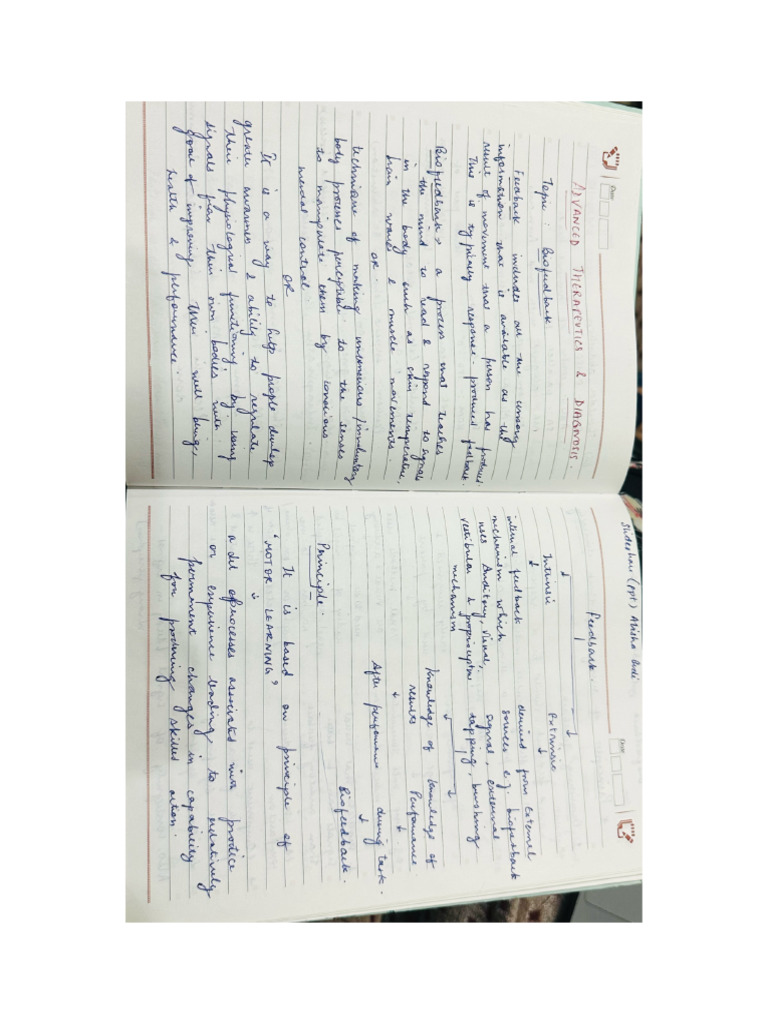 Date:
ADVANCED THERAPEUTICS & DIAGNOSIS.
Topic: Biofeedback
Feedback includes all the sensory
information that is available as the
result of movement that a person has produced.
This is typically response-produced feedback.
Biofeedback → a process that teaches
the mind to read & respond to signals
in the body such as skin temperature,
brain waves & muscle movements.
OR.
technique of making unconscious/involuntary
body processes perceptible to the senses
to manipulate them by conscious
mental control.
OR
It is a way to help people develop
greater awareness & ability to regulate
their physiological functioning by using
signals from their own bodies with
goal of improving their well being,
health & performance.
Slideshare (ppt)
Date:
Feedback.
↓ ↓
Intrinsic Extrinsic
↓ ↓
internal feedback derived from external
mechanism which sources e.g. biofeedback
uses Auditory, visual, signal, external
vestibular & proprioceptive tapping, brushing
mechanism
↓ ↓
knowledge of knowledge of
results Performance
↓ ↓
After performance during task.
↓
Biofeedback.
Principle.
It is based on principle of
'MOTOR LEARNING'
↓
a set of processes associated with practice
or experience leading to relatively
permanent changes in capability
for producing skilled action.